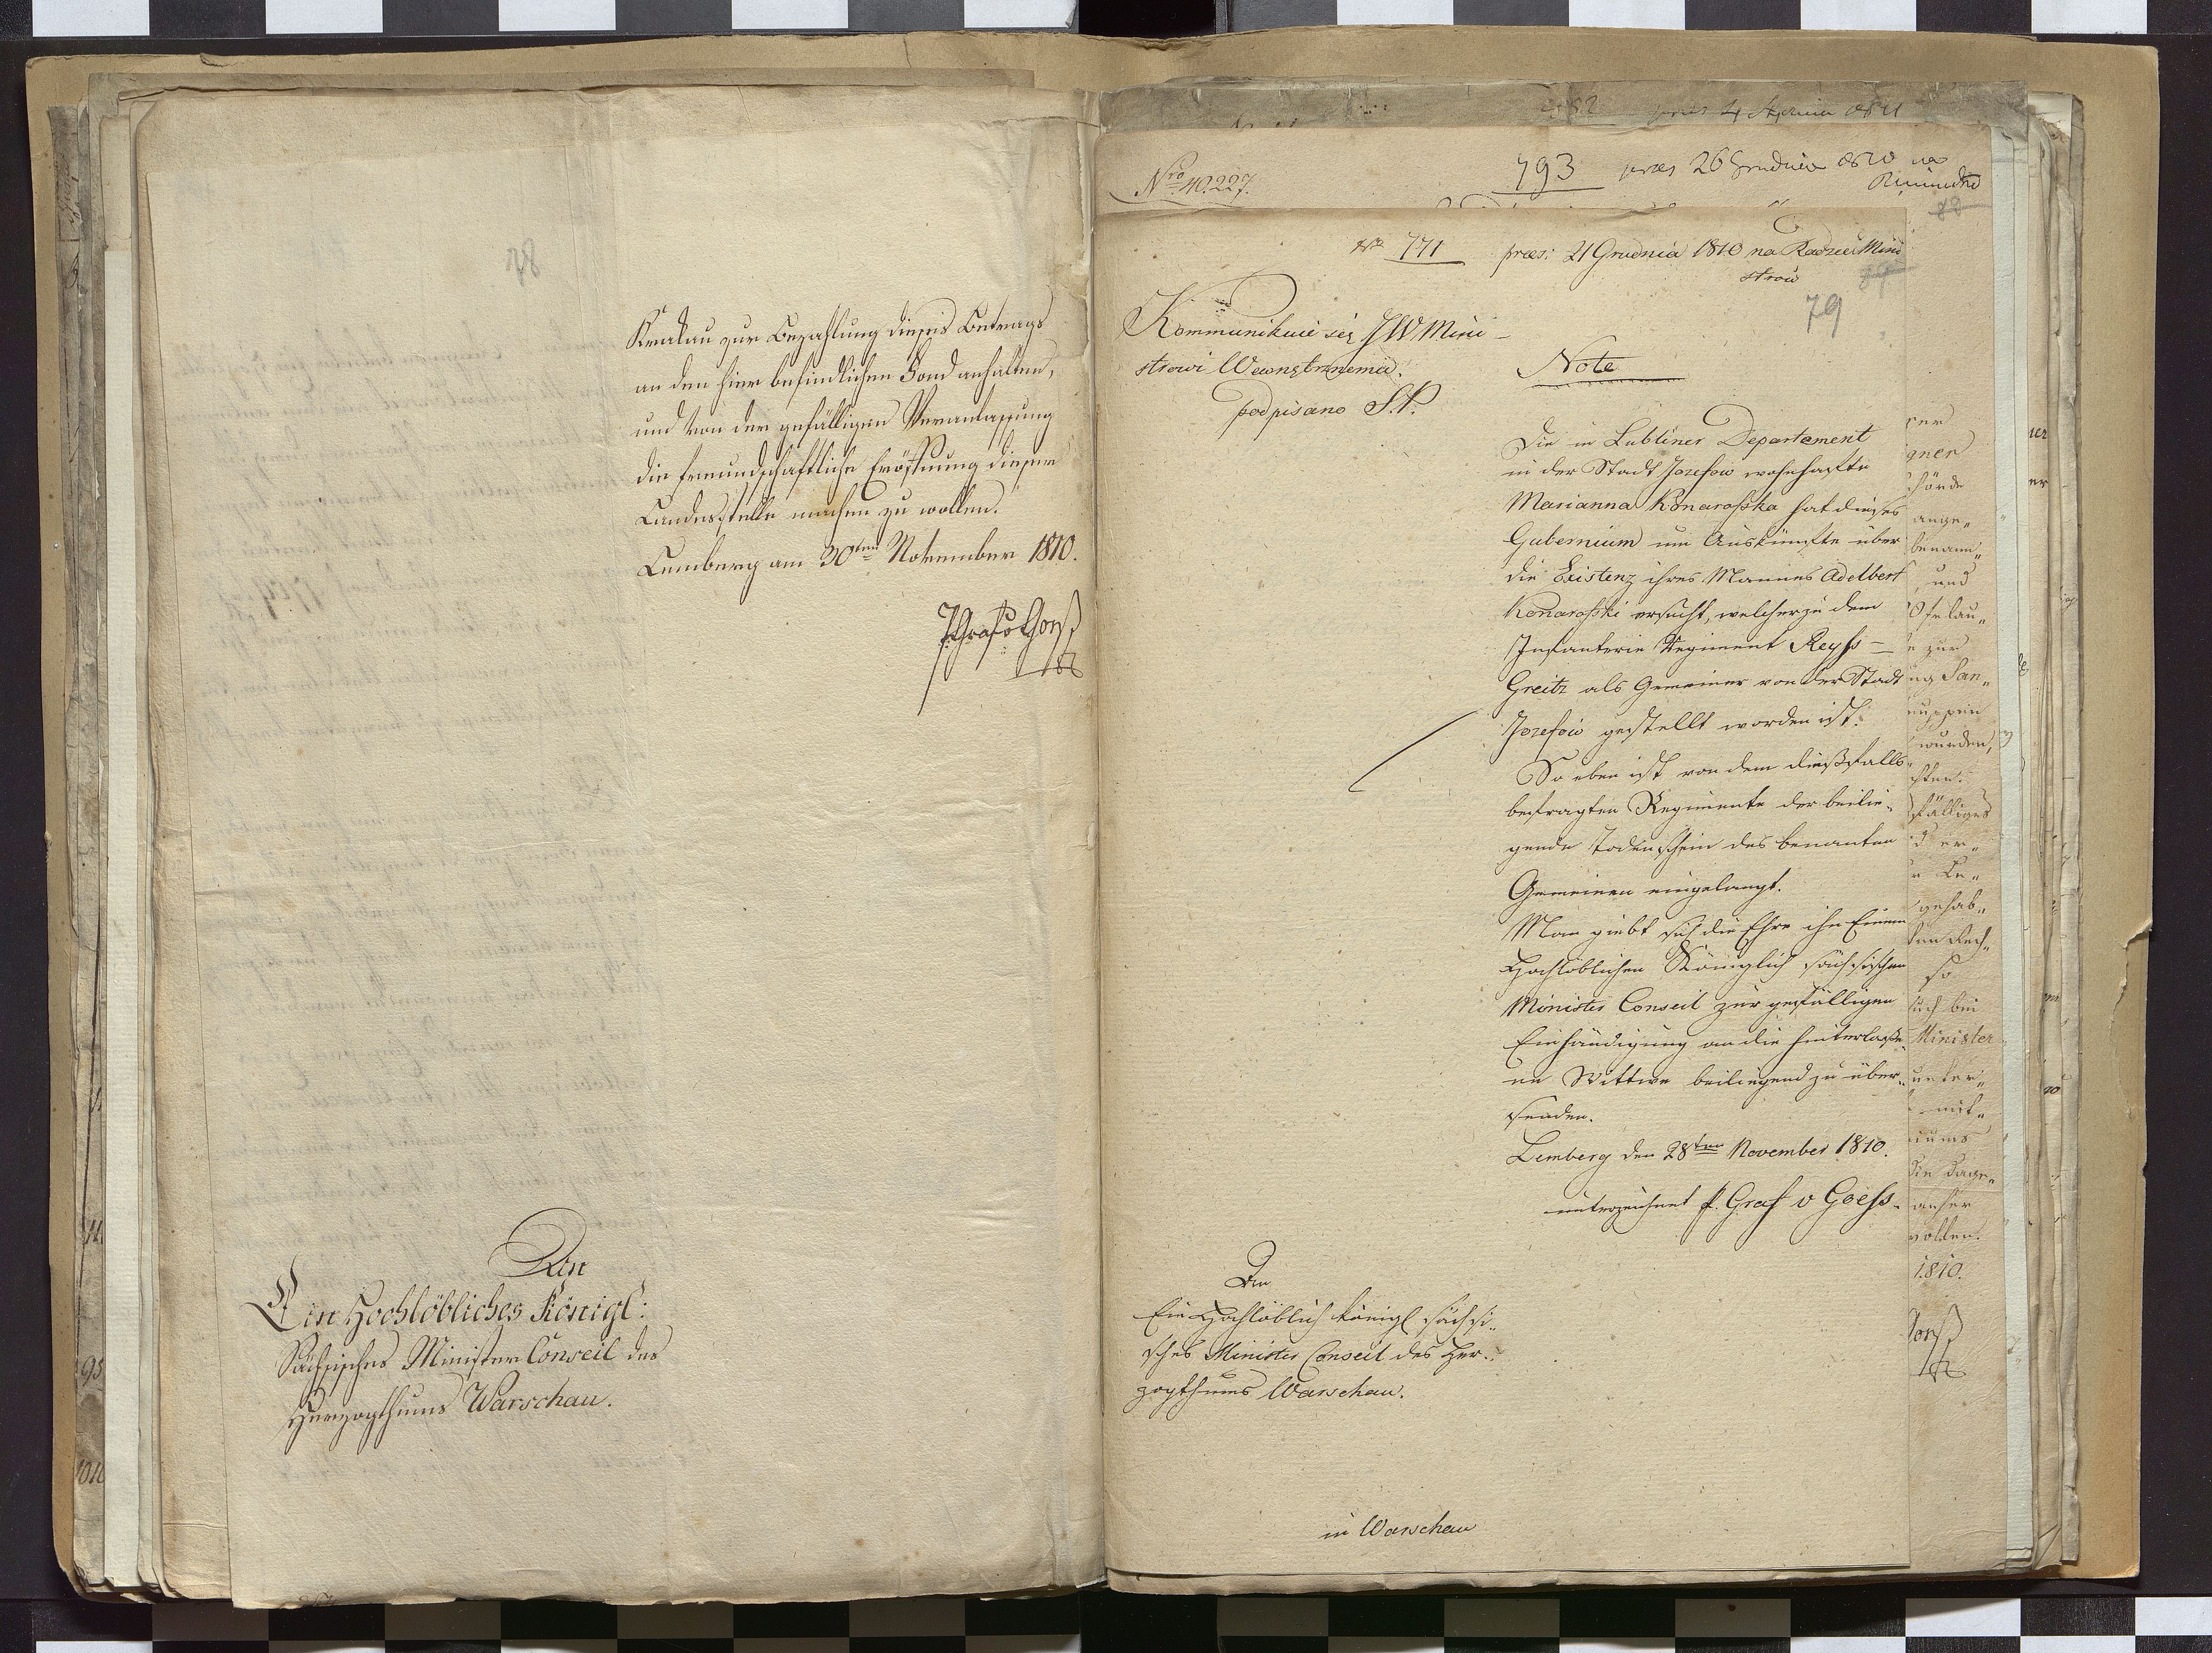 Krakau zur Bezahlung dieses Betrags
an den hier befindlichen Fond anhalten,
und von der gefälligen Veranlassung
die freundschaftliche Eröffnung dieser
Landesstelle machen zu wollen.
Lemberg am 30ten November 1810.
An
Ein Hochlöbliches Königl:
Sächsisches Minister Conseil des
Herzogthums Warschau.
4 Aprilis 1811
Nro 40.227.
793 præs 26 Grudnia 1810 na
88
No 771 præs: 21 Grudnia 1810 na Radzie Mini
strów
79
Kommunikuie się JW Mini-
strowi Wewnętrznemu.
podpisano S. P.
Note
Die in Lubliner Departement
in der Stadt Jozefow wohnhafte
Marianna Konarosska hat dieses
Gubernium um Auskünfte über
die Existenz ihres Mannes Adelbert
Konarosski ersucht, welcher zu dem
Infanterie Regiment Reyss-
Greitz als Gemeiner von der Stadt
Jozefow gestellt worden ist.
So eben ist von dem diessfalls
befragten Regimente der beilie-
gende Todenschein des benanten
Gemeinen eingelangt.
Man giebt sich die Ehre ihn Einem
Hochlöblichen Königlich sächsischen
Minister Conseil zur gefälligen
Einhändigung an die hinterlasse-
ne Wittwe beiliegend zu über-
senden.
Lemberg den 28ten November 1810.
unterzeichnet P. Graf v Goess.
An
Ein Hochlöblich königl sächsi-
sches Minister Conseil des Her-
zogthums Warschau.
in Warschau
und
wurden,
so
Minister
1810.